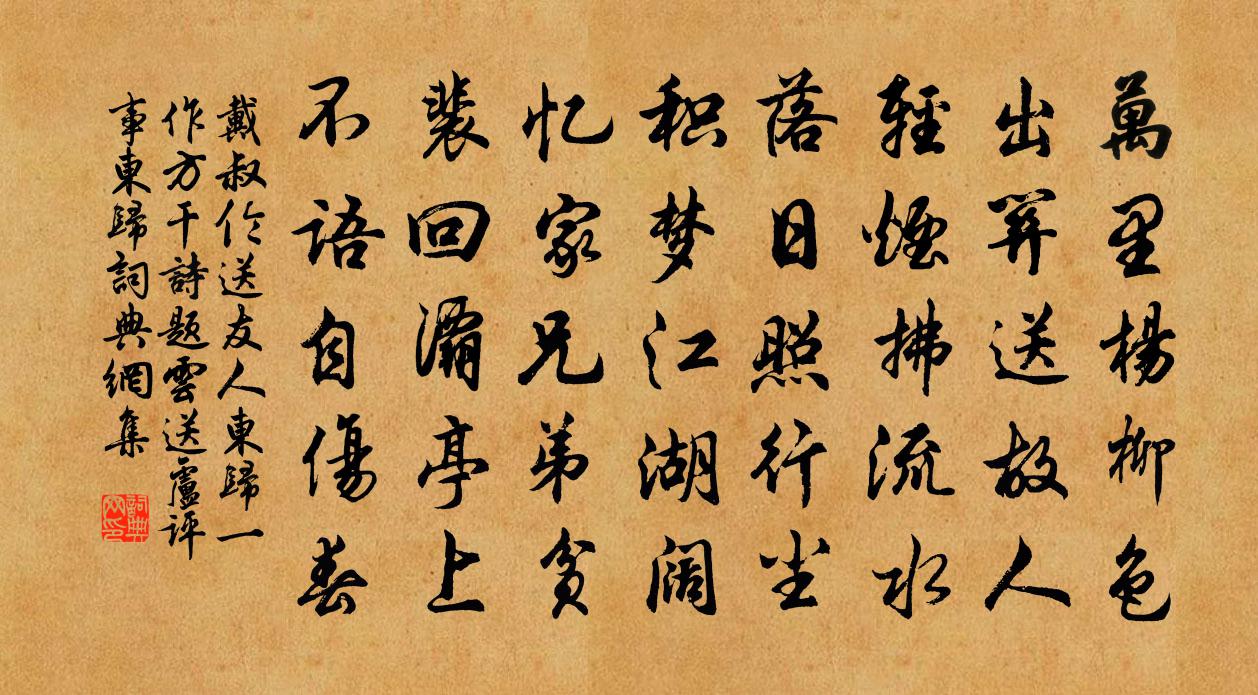 萬里楊柳色
出關送故人
輕煙拂流水
落日照行尘
积梦江湖阔
忆家兄弟贫
裴回灞亭上
不語自傷春
戴叔伦送友人東歸一
作方干詩题雲送盧評
事東歸詞典網集